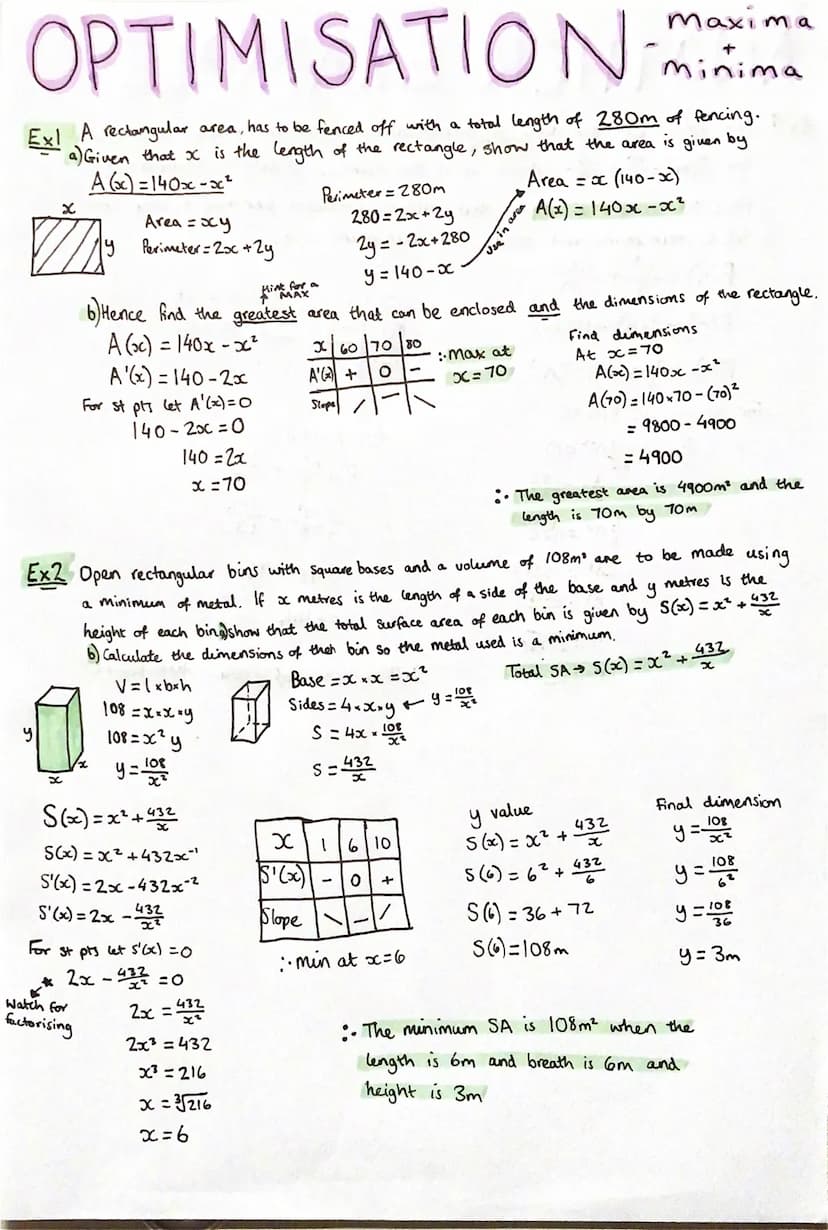 OPTIMISATION - maxima + minima
Ex1 A rectangular area, has to be fenced off with a total length of 280m of fencing.
a) Given that x is the length of the rectangle, show that the area is given by
A(x) = 140x - x²
x
y
Area = xy
Perimeter = 2x + 2y
Perimeter = 280m
280 = 2x + 2y
2y = -2x + 280
y = 140 - x
use in area
Area = x(140 - x)
A(x) = 140x - x²
Hint for a MAX
b) Hence find the greatest area that can be enclosed and the dimensions of the rectangle.
A(x) = 140x - x²
A'(x) = 140 - 2x
For st pts let A'(x) = 0
140 - 2x = 0
140 = 2x
x = 70
x | 60 | 70 | 80
A'(x) | + | 0 | -
Slope | / | — | \
∴ max at
x = 70
Find dimensions
At x = 70
A(x) = 140x - x²
A(70) = 140×70 - (70)²
= 9800 - 4900
= 4900
∴ The greatest area is 4900m² and the
length is 70m by 70m
Ex2 Open rectangular bins with square bases and a volume of 108m³ are to be made using
a minimum of metal. If x metres is the length of a side of the base and y metres is the
height of each bin a) show that the total surface area of each bin is given by S(x) = x² + 432/x
b) Calculate the dimensions of theh bin so the metal used is a minimum.
y
x
x
V = l × b × h
108 = x × x × y
108 = x² y
y = 108/x²
Base = x × x = x²
Sides = 4 × x × y ← y = 108/x²
S = 4x × 108/x²
S = 432/x
Total SA → S(x) = x² + 432/x
S(x) = x² + 432/x
S(x) = x² + 432x⁻¹
S'(x) = 2x - 432x⁻²
S'(x) = 2x - 432/x²
For st pts let S'(x) = 0
* 2x - 432/x² = 0
Watch for
factorising
2x = 432/x²
2x³ = 432
x³ = 216
x = ∛216
x = 6
x | 1 | 6 | 10
S'(x) | - | 0 | +
Slope | \ | — | /
∴ min at x = 6
y value
S(x) = x² + 432/x
S(6) = 6² + 432/6
S(6) = 36 + 72
S(6) = 108m
Final dimension
y = 108/x²
y = 108/6²
y = 108/36
y = 3m
∴ The minimum SA is 108m² when the
length is 6m and breath is 6m and
height is 3m